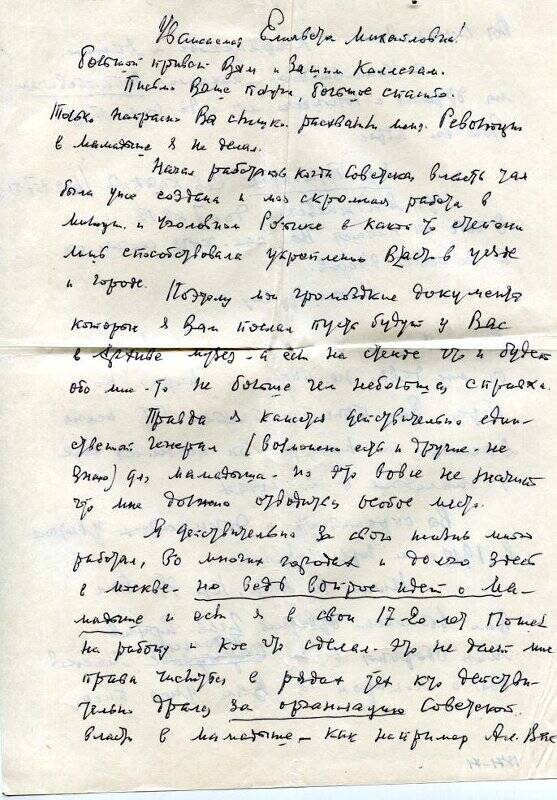 Уважаемая Елизавета Михайловна!
Большой привет Вам и Вашим Коллегам.
Письмо Ваше получ. большое спасибо.
Только напрасно Вы меня. Революцию
в Мамадыше я не делал.
Начал работать когда Советская власть там
была уже создана и моя скромная работа в
милиции и Уголовном Розыске в какой то степени
лишь способствовала укреплению Власти в уезде
и городе. Поэтому мои громоздкие документы
которые я Вам послал пусть будут у Вас
в Архиве музея - а если на стенде что и будет
обо мне - то не больше чем небольшая справка.
Правда я кажется действительно един-
ственный генерал (возможно есть и другие - не
знаю) для Мамадыша - но это вовсе не значит
что мне должно отводиться особое место.
Я действительно за свою жизнь много
работал, во многих городах и долго здесь
в Москве - но ведь вопрос идет о Ма-
мадыше и если я в свои 17-20 лет Пошел
на работу и кое что сделал - это не дает мне
права числиться в рядах тех кто действи-
тельно дрался за организацию Советской
власти в Мамадыше - как например Ал. Вас